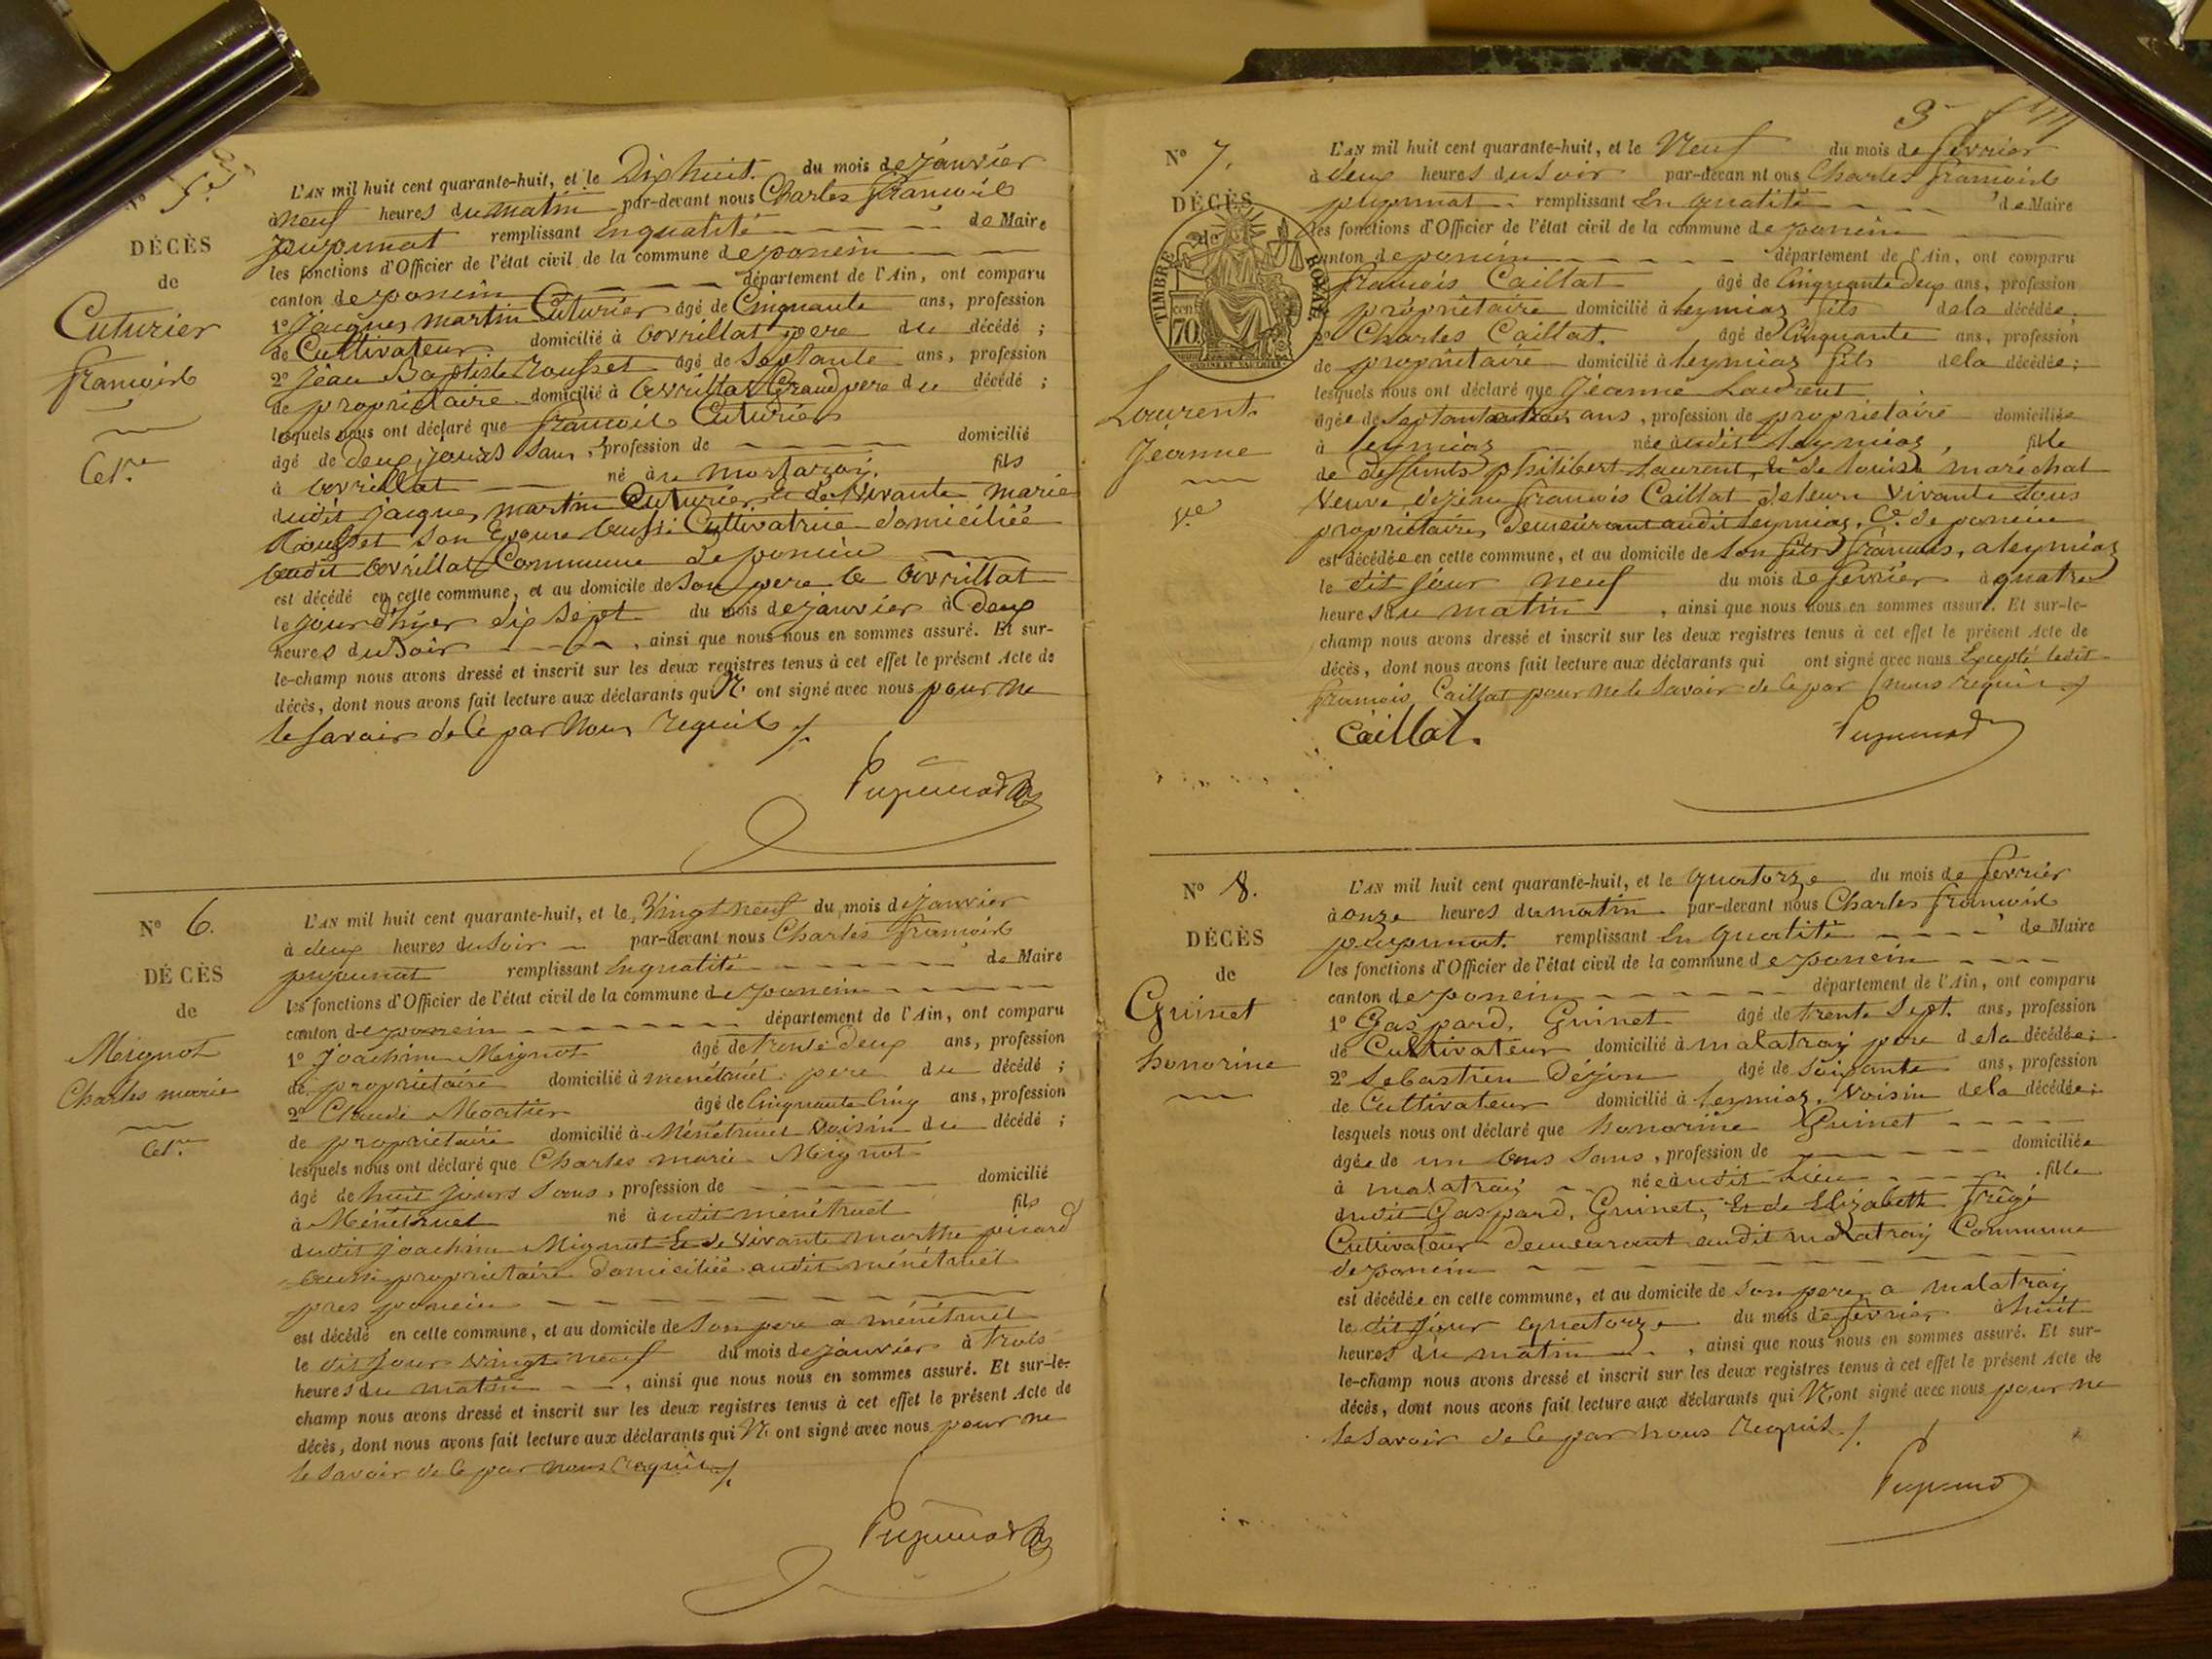 N° 5.
DÉCÈS
de
Cuturier
francois
Cel.re
L'AN mil huit cent quarante-huit, et le Dix huit du mois de janvier
à neuf heures du matin par-devant nous Charles francois
pupunat remplissant En qualité de Maire
les fonctions d'Officier de l'état civil de la commune de poncin
canton de poncin département de l'Ain, ont comparu
1° Jacques martin Cuturier âgé de Cinquante ans, profession
de Cultivateur domicilié à avrillat pere du décédé ;
2° Jean Baptiste rousset âgé de Septante ans, profession
de proprietaire domicilié à avrillat Grand pere du décédé ;
lesquels nous ont déclaré que francois Cuturier
âgé de deux jours sans, profession de domicilié
à avrillat né à fils
dudit jacques martin Cuturier et de vivante marie
Rousset son Epouse aussi Cultivatrice domiciliée
audit avrillat Commune de poncin
est décédé en cette commune, et au domicile de son pere a avrillat
le jour d'hyer dix sept du mois de janvier à Deux
heures du soir , ainsi que nous nous en sommes assuré. Et sur-
le-champ nous avons dressé et inscrit sur les deux registres tenus à cet effet le présent Acte de
décès, dont nous avons fait lecture aux déclarants qui N' ont signé avec nous pour ne
le savoir de Ce par Nous requis /.
Pupunat
N° 6.
DÉCÈS
de
Mignot
Charles marie
Cel.re
L'AN mil huit cent quarante-huit, et le Vingt neuf du mois de janvier
à deux heures du soir par-devant nous Charles francois
pupunat remplissant En qualité de Maire
les fonctions d'Officier de l'état civil de la commune de poncin
canton de poncin département de l'Ain, ont comparu
1° joachim Mignot âgé de trente Deux ans, profession
de proprietaire domicilié à menétruel pere du décédé ;
2° Claude âgé de Cinquante Cinq ans, profession
de proprietaire domicilié à Ménétruel voisin du décédé ;
lesquels nous ont déclaré que Charles marie Mignot
âgé de huit jours sans, profession de domicilié
à Ménétruel né audit ménétruel fils
dudit joachim Mignot Et de vivante marthe picard
aussi proprietaire domiciliée audit ménétruel
pres poncin
est décédé en cette commune, et au domicile de son pere a ménétruel
le dit jour vingt neuf du mois de janvier à trois
heures du matin , ainsi que nous nous en sommes assuré. Et sur-le-
champ nous avons dressé et inscrit sur les deux registres tenus à cet effet le présent Acte de
décès, dont nous avons fait lecture aux déclarants qui N' ont signé avec nous pour ne
le savoir de Ce par nous requis /.
Pupunat
3
N° 7.
DÉCÈS
de
TIMBRE ROYAL
cent 70
Laurent
Jeanne
v.e
L'AN mil huit cent quarante-huit, et le Neuf du mois de fevrier
à deux heures du soir par-devan nt ous Charles francois
pupunat remplissant En qualité de Maire
les fonctions d'Officier de l'état civil de la commune de poncin
canton de poncin département de l'Ain, ont comparu
francois Caillat âgé de Cinquante Deux ans, profession
proprietaire domicilié à leymiaz fils de la décédée ;
2° Charles Caillat. âgé de Cinquante ans, profession
de proprietaire domicilié à leymiaz fils de la décédée ;
lesquels nous ont déclaré que Jeanne Laurent
âgée de ans, profession de proprietaire domiciliée
à leymiaz née audit leymiaz, fille
de deffunts philibert Laurent, et de Louise maréchal
veuve de jean francois Caillat de leurs vivants tous
proprietaires demeurant audit leymiaz, C.e de poncin
est décédée en cette commune, et au domicile de son fils francois, a leymiaz
le dit jour neuf du mois de fevrier à quatre
heures du matin , ainsi que nous nous en sommes assuré. Et sur-le-
champ nous avons dressé et inscrit sur les deux registres tenus à cet effet le présent Acte de
décès, dont nous avons fait lecture aux déclarants qui ont signé avec nous Excepté ledit
francois Caillat pour ne le savoir de Ce par nous requis /.
Caillat.
Pupunat
N° 8.
DÉCÈS
de
Guinet
honorine
L'AN mil huit cent quarante-huit, et le quatorze du mois de fevrier
à onze heures du matin par-devant nous Charles francois
pupunat. remplissant En qualité de Maire
les fonctions d'Officier de l'état civil de la commune de poncin
canton de poncin département de l'Ain, ont comparu
1° Gaspard, Guinet âgé de trente Sept. ans, profession
de Cultivateur domicilié à malatray pere de la décédée ;
2° Sebastien Dejon âgé de soixante ans, profession
de Cultivateur domicilié à leymiaz, voisin de la décédée ;
lesquels nous ont déclaré que honorine Guinet
âgée de un ans sans, profession de domiciliée
à malatray née audit Lieu fille
dudit Gaspard, Guinet, Et de Elizabeth
Cultivateur demeurant audit malatray Commune
de poncin
est décédée en cette commune, et au domicile de son pere a malatray
le dit jour quatorze du mois de fevrier à huit
heures du matin , ainsi que nous nous en sommes assuré. Et sur-
le-champ nous avons dressé et inscrit sur les deux registres tenus à cet effet le présent Acte de
décès, dont nous avons fait lecture aux déclarants qui N' ont signé avec nous pour ne
le savoir de Ce par nous requis /.
Pupunat